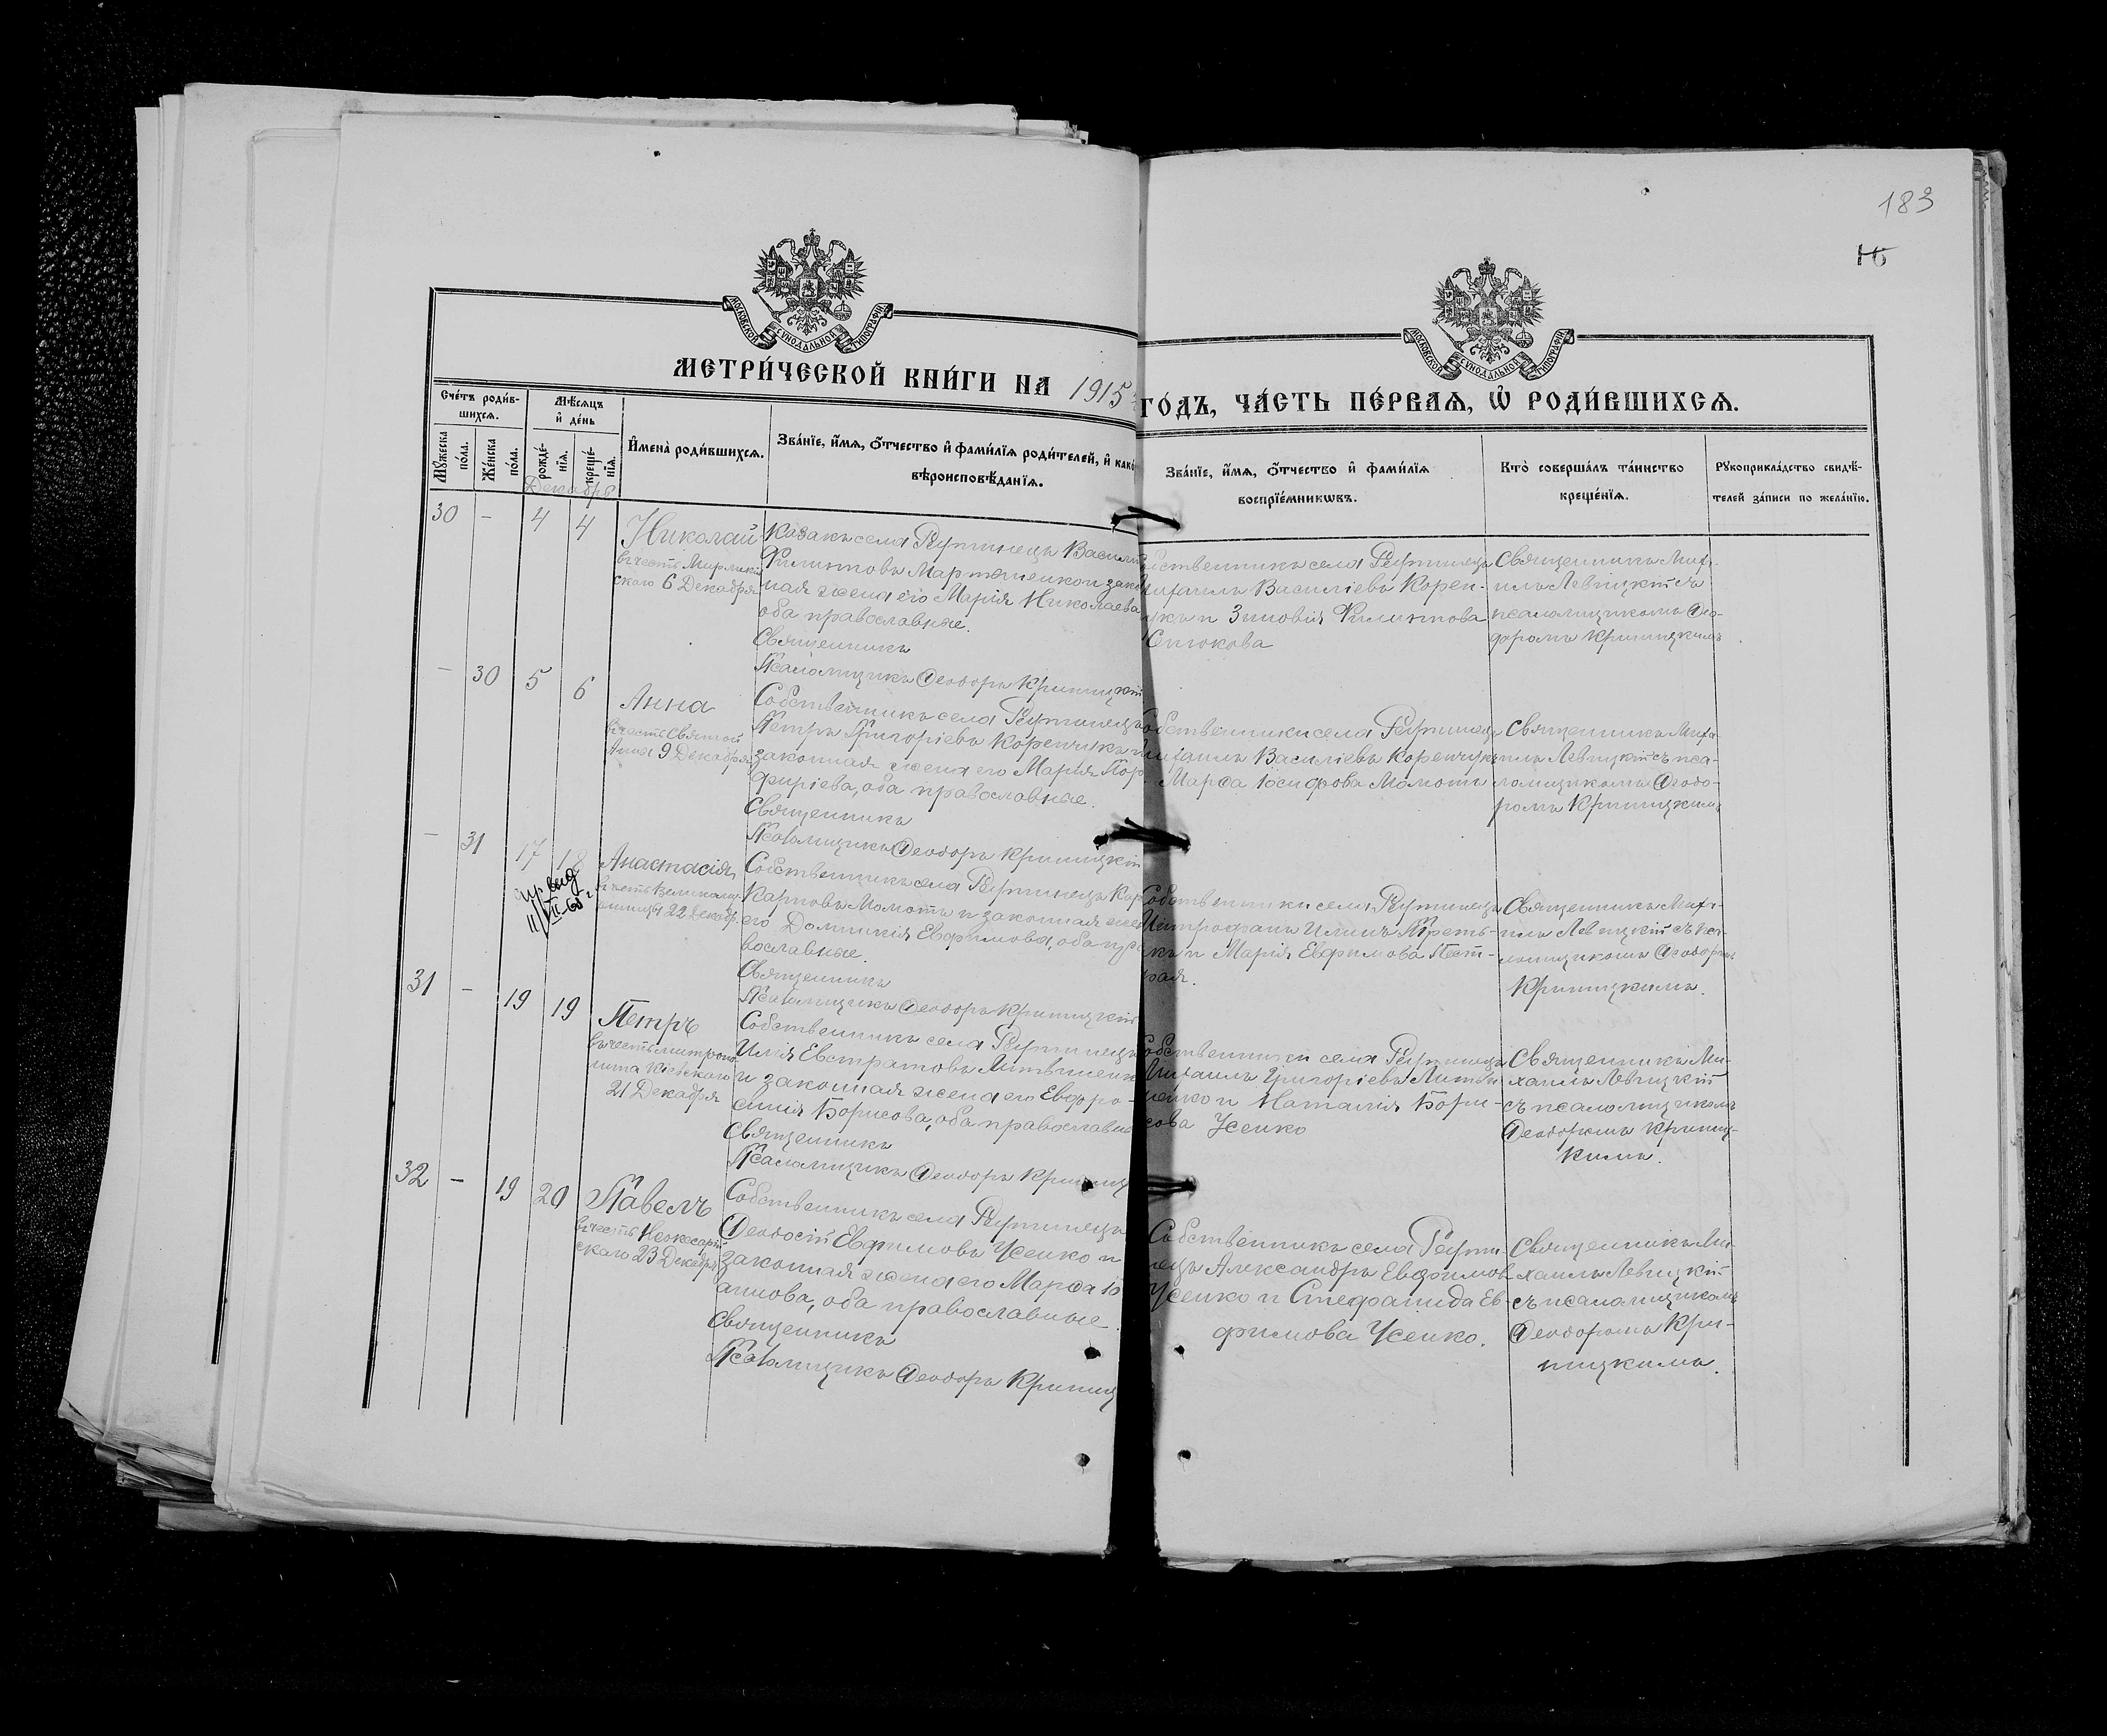 183
16
МОСКОВСКОЙ СѴНОДАЛЬНОЙ ТИПОГРАФІИ
МОСКОВСКОЙ СѴНОДАЛЬНОЙ ТИПОГРАФІИ
МЕТРИ́ЧЕСКОЙ КНИ́ГИ НА 1915
ГО́ДЪ, ЧА́СТЬ ПЕ́РВАѦ, Ѡ҆ РОДИ́ВШИХСѦ.
Сче́тъ роди́в-
шихсѧ.
Мꙋ́жеска
по́ла.
Же́нска
по́ла.
Мѣ́сѧцъ
и҆ де́нь
рожде́-
нїѧ.
креще́-
нїѧ.
И҆мена̀ роди́вшихсѧ.
Зва́нїе, и҆́мѧ, ѻ҆́тчество и҆ фамѝлїѧ роди́телей, и҆ како
вѣроисповѣ́данїѧ.
Зва́нїе, и҆́мѧ, ѻ҆́тчество и҆ фами́лїѧ
воспрїе́мникѡвъ.
Кто̀ соверша́лъ та́инство
креще́нїѧ.
Рꙋкоприкла́дство свидѣ́-
телей за́писи по жела́нїю.
Декабрь
30 - 4 4
Николай
въ честь Мирликій
скаго 6 Декабря
Козакъ села Василій
Филипповъ и зако
ная жена его Марія Николаева
оба православные.
Священникъ
Псаломщикъ Ѳеодоръ Криницкій
ственники села
Михаилъ Василіевъ Корен-
и Зиновія Филиппова
Священникъ Миха-
илъ Левицкій съ
псаломщикомъ Ѳео-
доромъ Криницкимъ
- 30 5 6
Анна
въ честь Святой
Анны 9 Декабря
Собственникъ села
Петръ Григоріевъ Коренчукъ и
законная жена его Марія Пор
фиріева, оба православные.
Священникъ
Псаломщикъ Ѳеодоръ Криницкій
Собственники села
Михаилъ Василіевъ Коренчукъ
Марѳа Іосифова Момотъ
Священникъ Миха-
илъ Левицкій съ пса-
ломщикомъ Ѳеодо-
ромъ Криницкимъ
- 31 17 18
Анастасія
въ честь Великому-
ченицы 22 Декабр.
Собственникъ села
Карповъ Момотъ и законная жен
его Домникія Евфимова, оба пра
вославные.
Священникъ
Псаломщикъ Ѳеодоръ Криницкій
Собственники села
Митрофанъ Илинъ Треть-
къ и Марія Евфимова Пест-
рая.
Священникъ Миха-
илъ Левицкій съ пса-
ломщикомъ Ѳеодоромъ
Криницкимъ.
31 - 19 19
Петръ
въ честь митропо-
лита Кіевскаго
21 Декабря
Собственникъ села
Илія Евстратовъ Литвиненк
и законная жена его Евфро-
синія Борисова, оба православн
Священникъ
Псаломщикъ Ѳеодоръ Криниц
Собственники села
Михаилъ Григоріевъ Литви
ненко и Наталія Бори-
сова Усенко
Священникъ Ми-
хаилъ Левицкій
съ псаломщикомъ
Ѳеодоромъ Криниц-
кимъ.
32 - 19 20
Павелъ
въ честь Неокесарій
скаго 23 Декабря
Собственникъ села
Ѳеодосій Евфимовъ Усенко и
законная жена его Марѳа Іо
аннова, оба православные.
Священникъ
Псаломщикъ Ѳеодоръ Криниц
Собственникъ села
Александръ Евфимов
Усенко и Стефанида Ев-
фимова Усенко.
Священникъ Ми-
хаилъ Левицкій
съ псаломщикомъ
Ѳеодоромъ Кри-
ницкимъ.